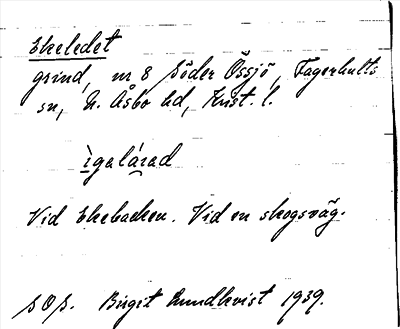 Ekeledet
grind, nr 8 Söder Össjö, Fagerhults
sn, N. Åsbo hd, Krist. l.
ìgalárad
Vid Ekebacken. Vid en skogsväg.
SOS. Birgit Lundkvist 1939.